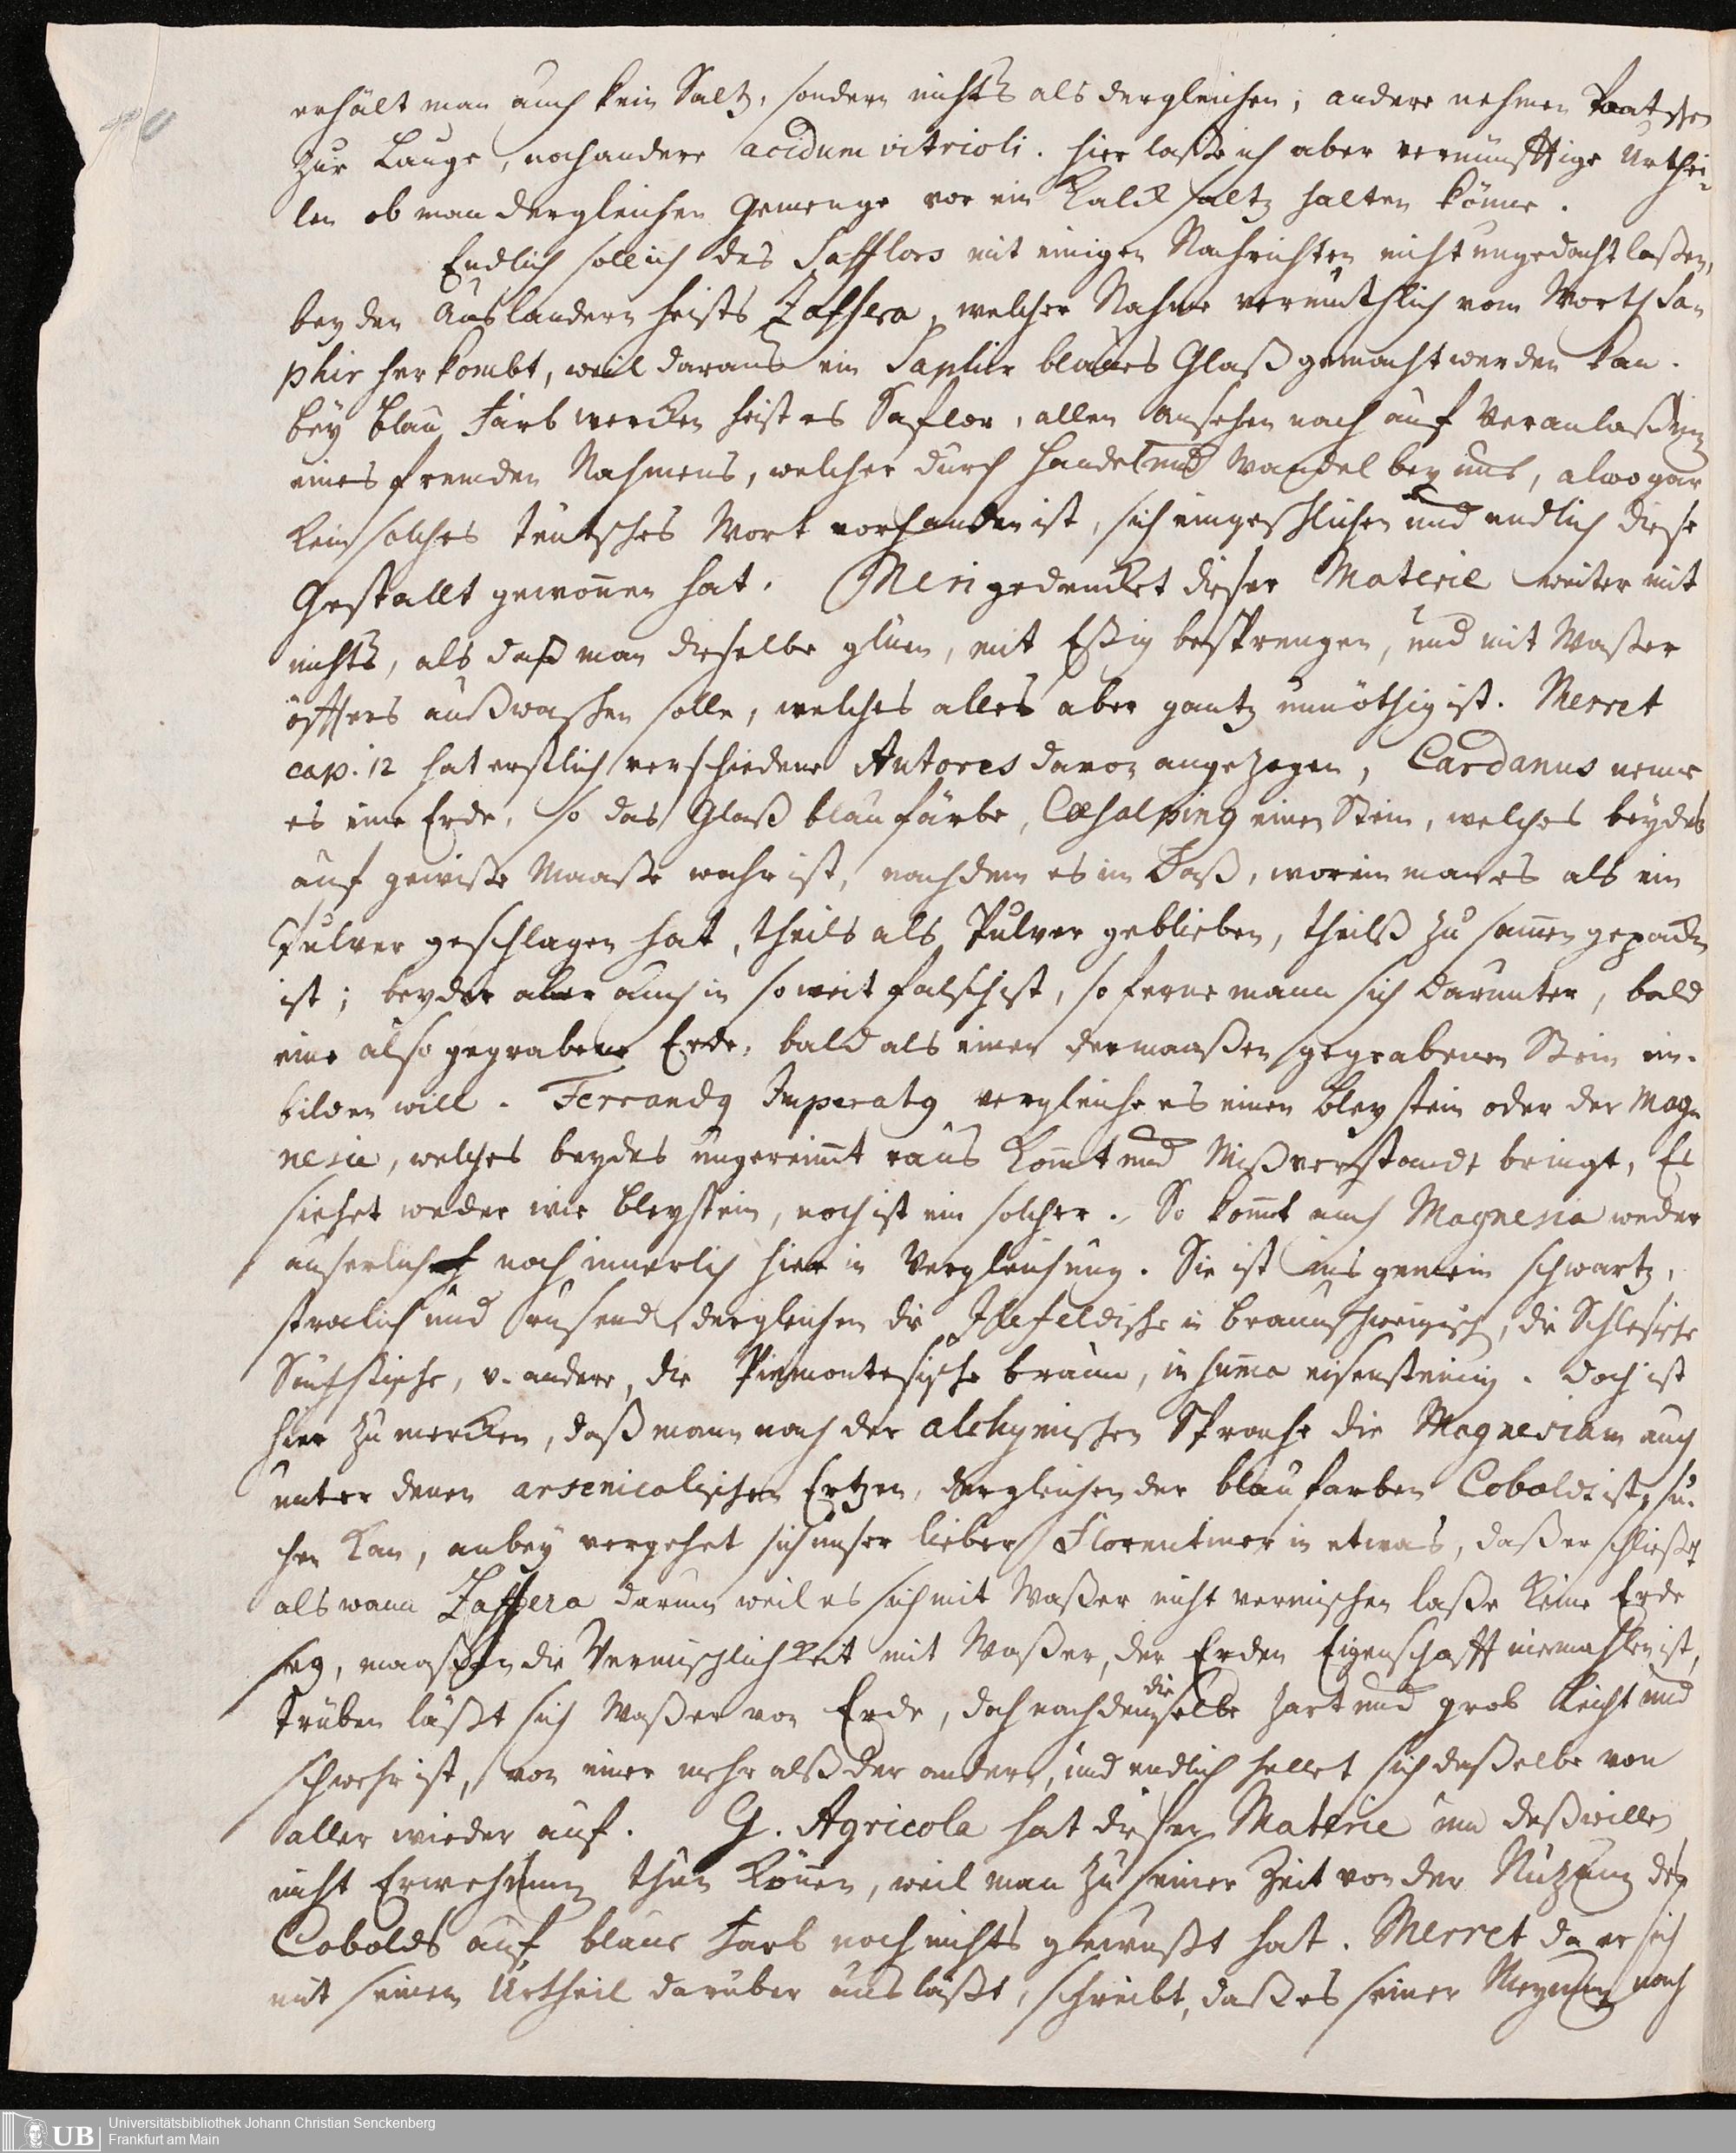 erhält man auch kein Saltz, sondern nichts als dergleichen; andere nehmen Paatschen
zur Lauge, noch andere acidum vitrioli. hier laße ich aber vernünfftige Urthei-
len ob man dergleichen Gemenge vor ein Kalck saltz halten könne.
Endlich soll ich des Safflors mit einigen Nachrichten nicht ungedacht laßen,
bey den Ausländern heists Zaffera, welcher Nahme vermuthlich vom Worth Sa-
phir herkombt, weil daraus ein Saphir blaues Glaß gemacht werden kan.
bey blau Farb wercken heist es Saflor, allen ansehen nach auf Veranlaßung
eines fremden Nahmens, welcher durch Handel und Wandel bey uns, alwo gar
kein solches teutsches Wort vorhanden ist, sich eingeschlichen und endlich diese
Gestallt gewonnen hat. Neri gedencket dieser Materie weiter mit
nichts, als daß man dieselbe glüen, mit Eßig besprengen, und mit Waßer
öffters außwaschen solle, welches alles aber gantz unnöthig ist. Merret
cap. 12 hat erstlich verschiedene Autores davon angezogen, Cardanus nenne
es eine Erde, so das Glaß blau färbe, Cæsalpinus einen Stein, welches beydes
auf gewiße Maaße wahr ist, nachdem es im Faß, worein man es als ein
Pulver geschlagen hat, theils als Pulver geblieben, theilß zusammen gepacken
ist; beyder aber auch in so weit falsch ist, so ferne mann sich darunter, bald
eine also gegrabene Erde, bald als einen dermaaßen gegrabenen Stein ein-
bilden will. Ferrandus Imperatus vergleiche es einen Bleystein oder der Mag-
nesie, welches beydes ungereimt raus kommt und Mißverstande bringt, Es
siehet weder wie Bleystein, noch ist ein solcher. So kommt auch Magnesia weder
äuserlich noch innerlich hier in Vergleichung. Sie ist ins gemein schwartz,
stralich und rusend, dergleichen die Ilefeldische in Braunschweigisch, die Schlesische
Sächsische, u. andere, die Piemontesische braun, in summa eisensteinig. Doch ist
hier zu mercken, daß mann nach der alchymischen Sprache die Magnesiam auch
unter denen arsenicalischen Ertzen, dergleichen der blau farben Cobold ist, su-
chen kan, anbey vergehet sich unser lieber Florentiner in etwas, daß er schließet
als wann Zaffera darum weil es sich mit Waßer nicht vermischen laße keine Erde
sey, maaßen die Vermischlichkeit mit Waßer, der Erden Eigenschafft niemahlen ist,
trüben läßt sich Waßer von Erde, doch nachdem dieselbe zart und grob leicht und
schwehr ist, von einer mehr alß der andern, und endlich hellet sich daßelbe von
aller wieder auf. G. Agricola hat dieser Materie um deßwillen
nicht Erwehnung thun können, weil man zu seiner Zeit von der Nuzung des
Cobolds auf blaue Farb noch nichts gewußt hat. Merret da er sich
mit seinen Urtheil darüber ausläßt, schreibt, daß es seiner Meynung nach
Universitätsbibliothek Johann Christian Senckenberg
Frankfurt am Main
UB